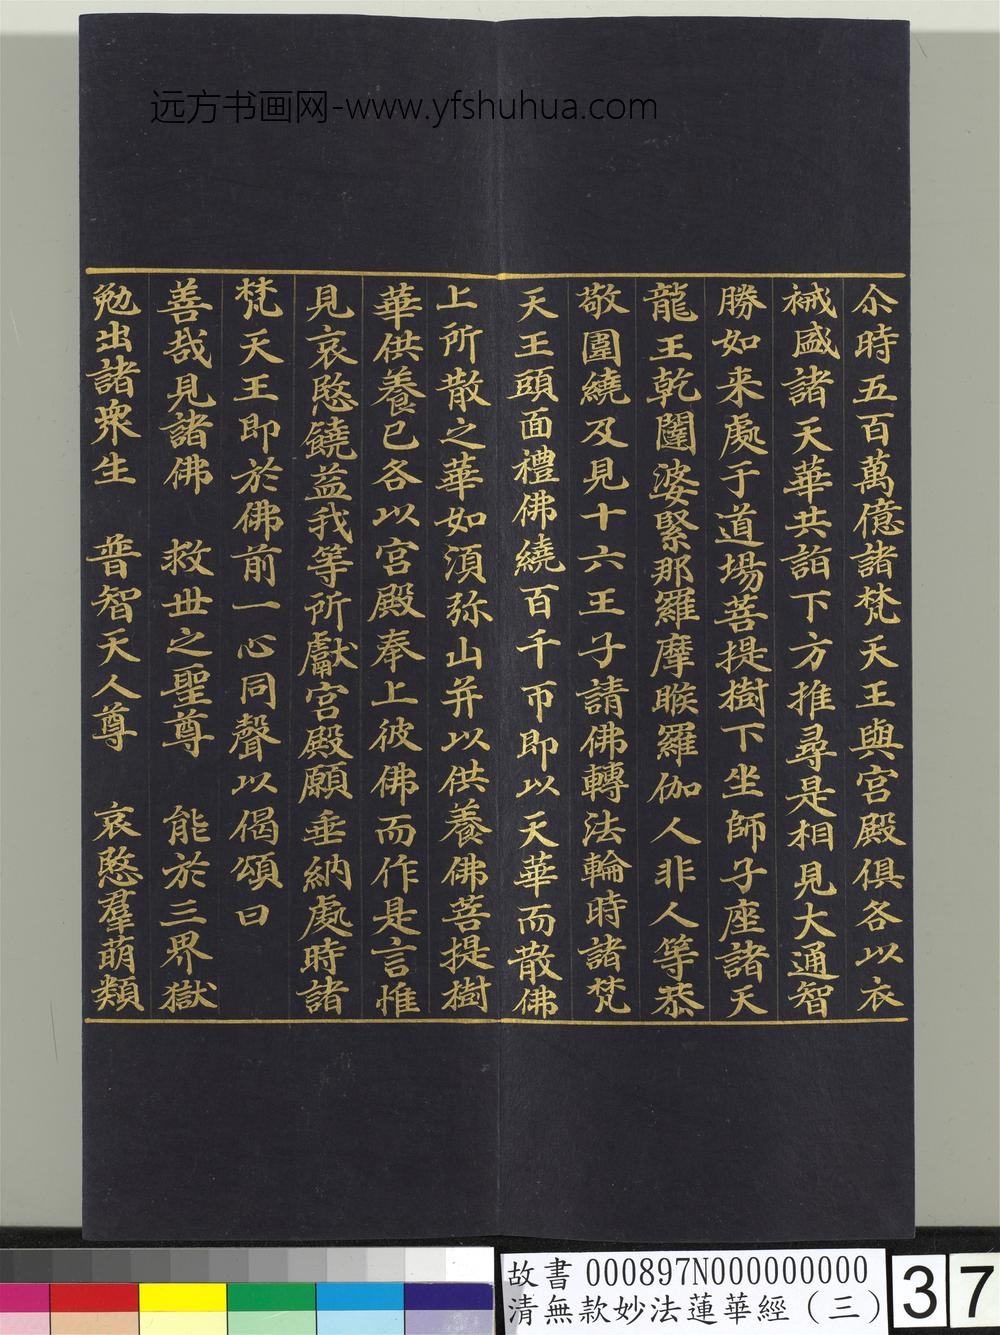 远方书画网-www.yfshuhua.com
尒時五百萬億諸梵天王與宮殿俱各以衣
祴盛諸天華共詣下方推尋是相見大通智
勝如来處于道場菩提樹下坐師子座諸天
龍王乾闥婆緊那羅摩睺羅伽人非人等恭
敬圍繞及見十六王子請佛轉法輪時諸梵
天王頭面禮佛繞百千帀即以天華而散佛
上所散之華如須弥山并以供養佛菩提樹
華供養已各以宮殿奉上彼佛而作是言惟
見哀愍饒益我等所獻宮殿願垂納處時諸
梵天王即於佛前一心同聲以偈頌曰
善哉見諸佛　救世之聖尊　能於三界獄
勉出諸衆生　普智天人尊　哀愍羣萌類
故書 000897N000000000
清無款妙法蓮華經（三）
37